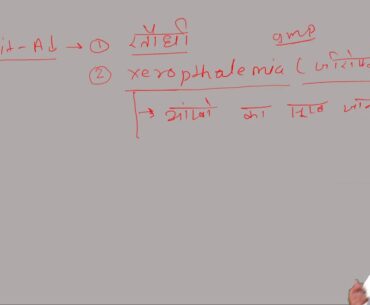 it-A↓ → ① रतौंधी gmp
② xeropthalemia (
→ आंखो का सूख